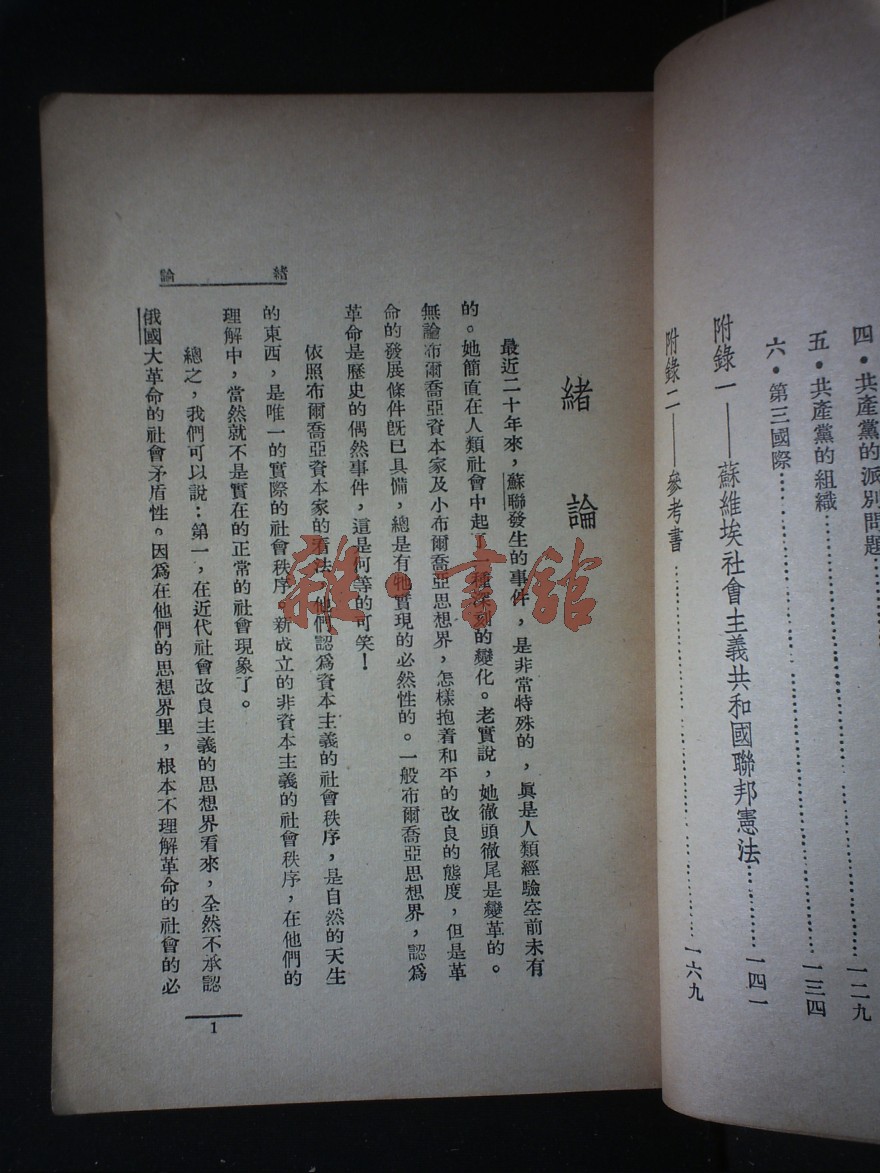 四・共產黨的派別問題……一二九
五・共產黨的組織……一三四
六・第三國際……
附錄一——蘇維埃社會主義共和國聯邦憲法……一四一
附錄二——參考書……一六九
緒論
最近二十年來，蘇聯發生的事件，是非常特殊的，眞是人類經驗空前未有
的。她簡直在人類社會中起了一種深刻的變化。老實說，她徹頭徹尾是變革的。
無論布爾喬亞資本家及小布爾喬亞思想界，怎樣抱着和平的改良的態度，但是革
命的發展條件既已具備，總是有牠實現的必然性的。一般布爾喬亞思想界，認爲
革命是歷史的偶然事件，這是何等的可笑！
依照布爾喬亞資本家的看法，他們認爲資本主義的社會秩序，是自然的天生
的東西，是唯一的實際的社會秩序，新成立的非資本主義的社會秩序，在他們的
理解中，當然就不是實在的正常的社會現象了。
總之，我們可以說：第一，在近代社會改良主義的思想界看來，全然不承認
俄國大革命的社會矛盾性。因爲在他們的思想界里，根本不理解革命的社會的必
緒論
1
雜・書館